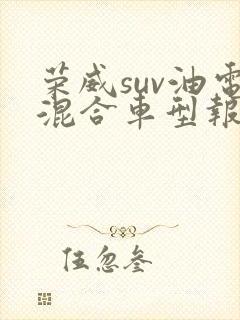 荣威suv油電
混合車型報
伍忽叁